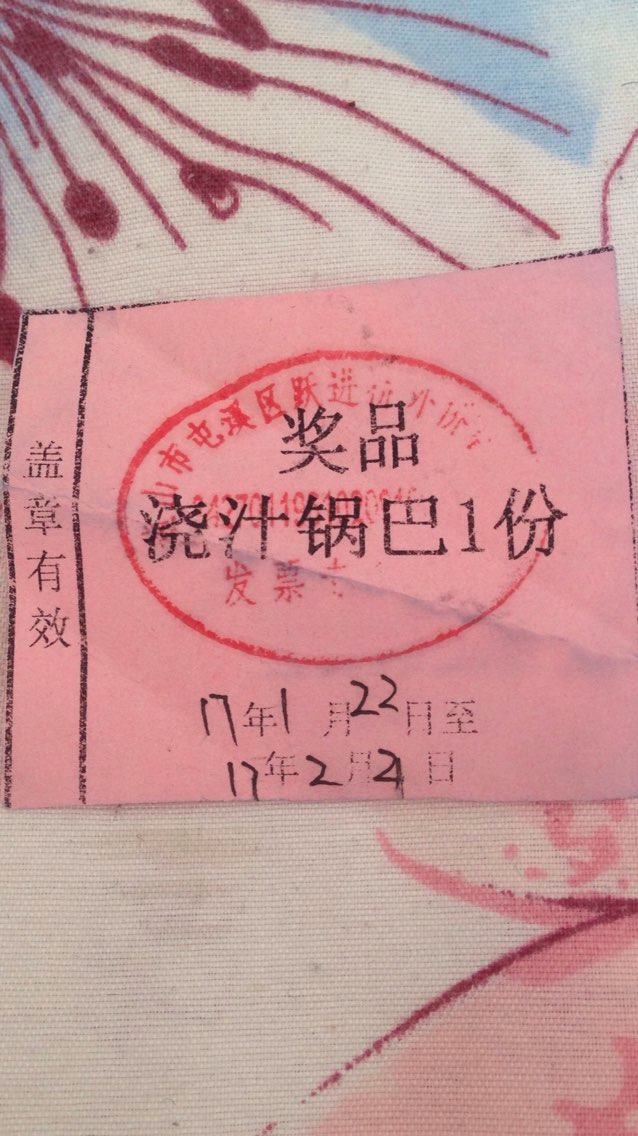 盖章有效
奖品
浇汁锅巴1份
市屯溪区跃进
发票
17年1月22日至
17年2月21日